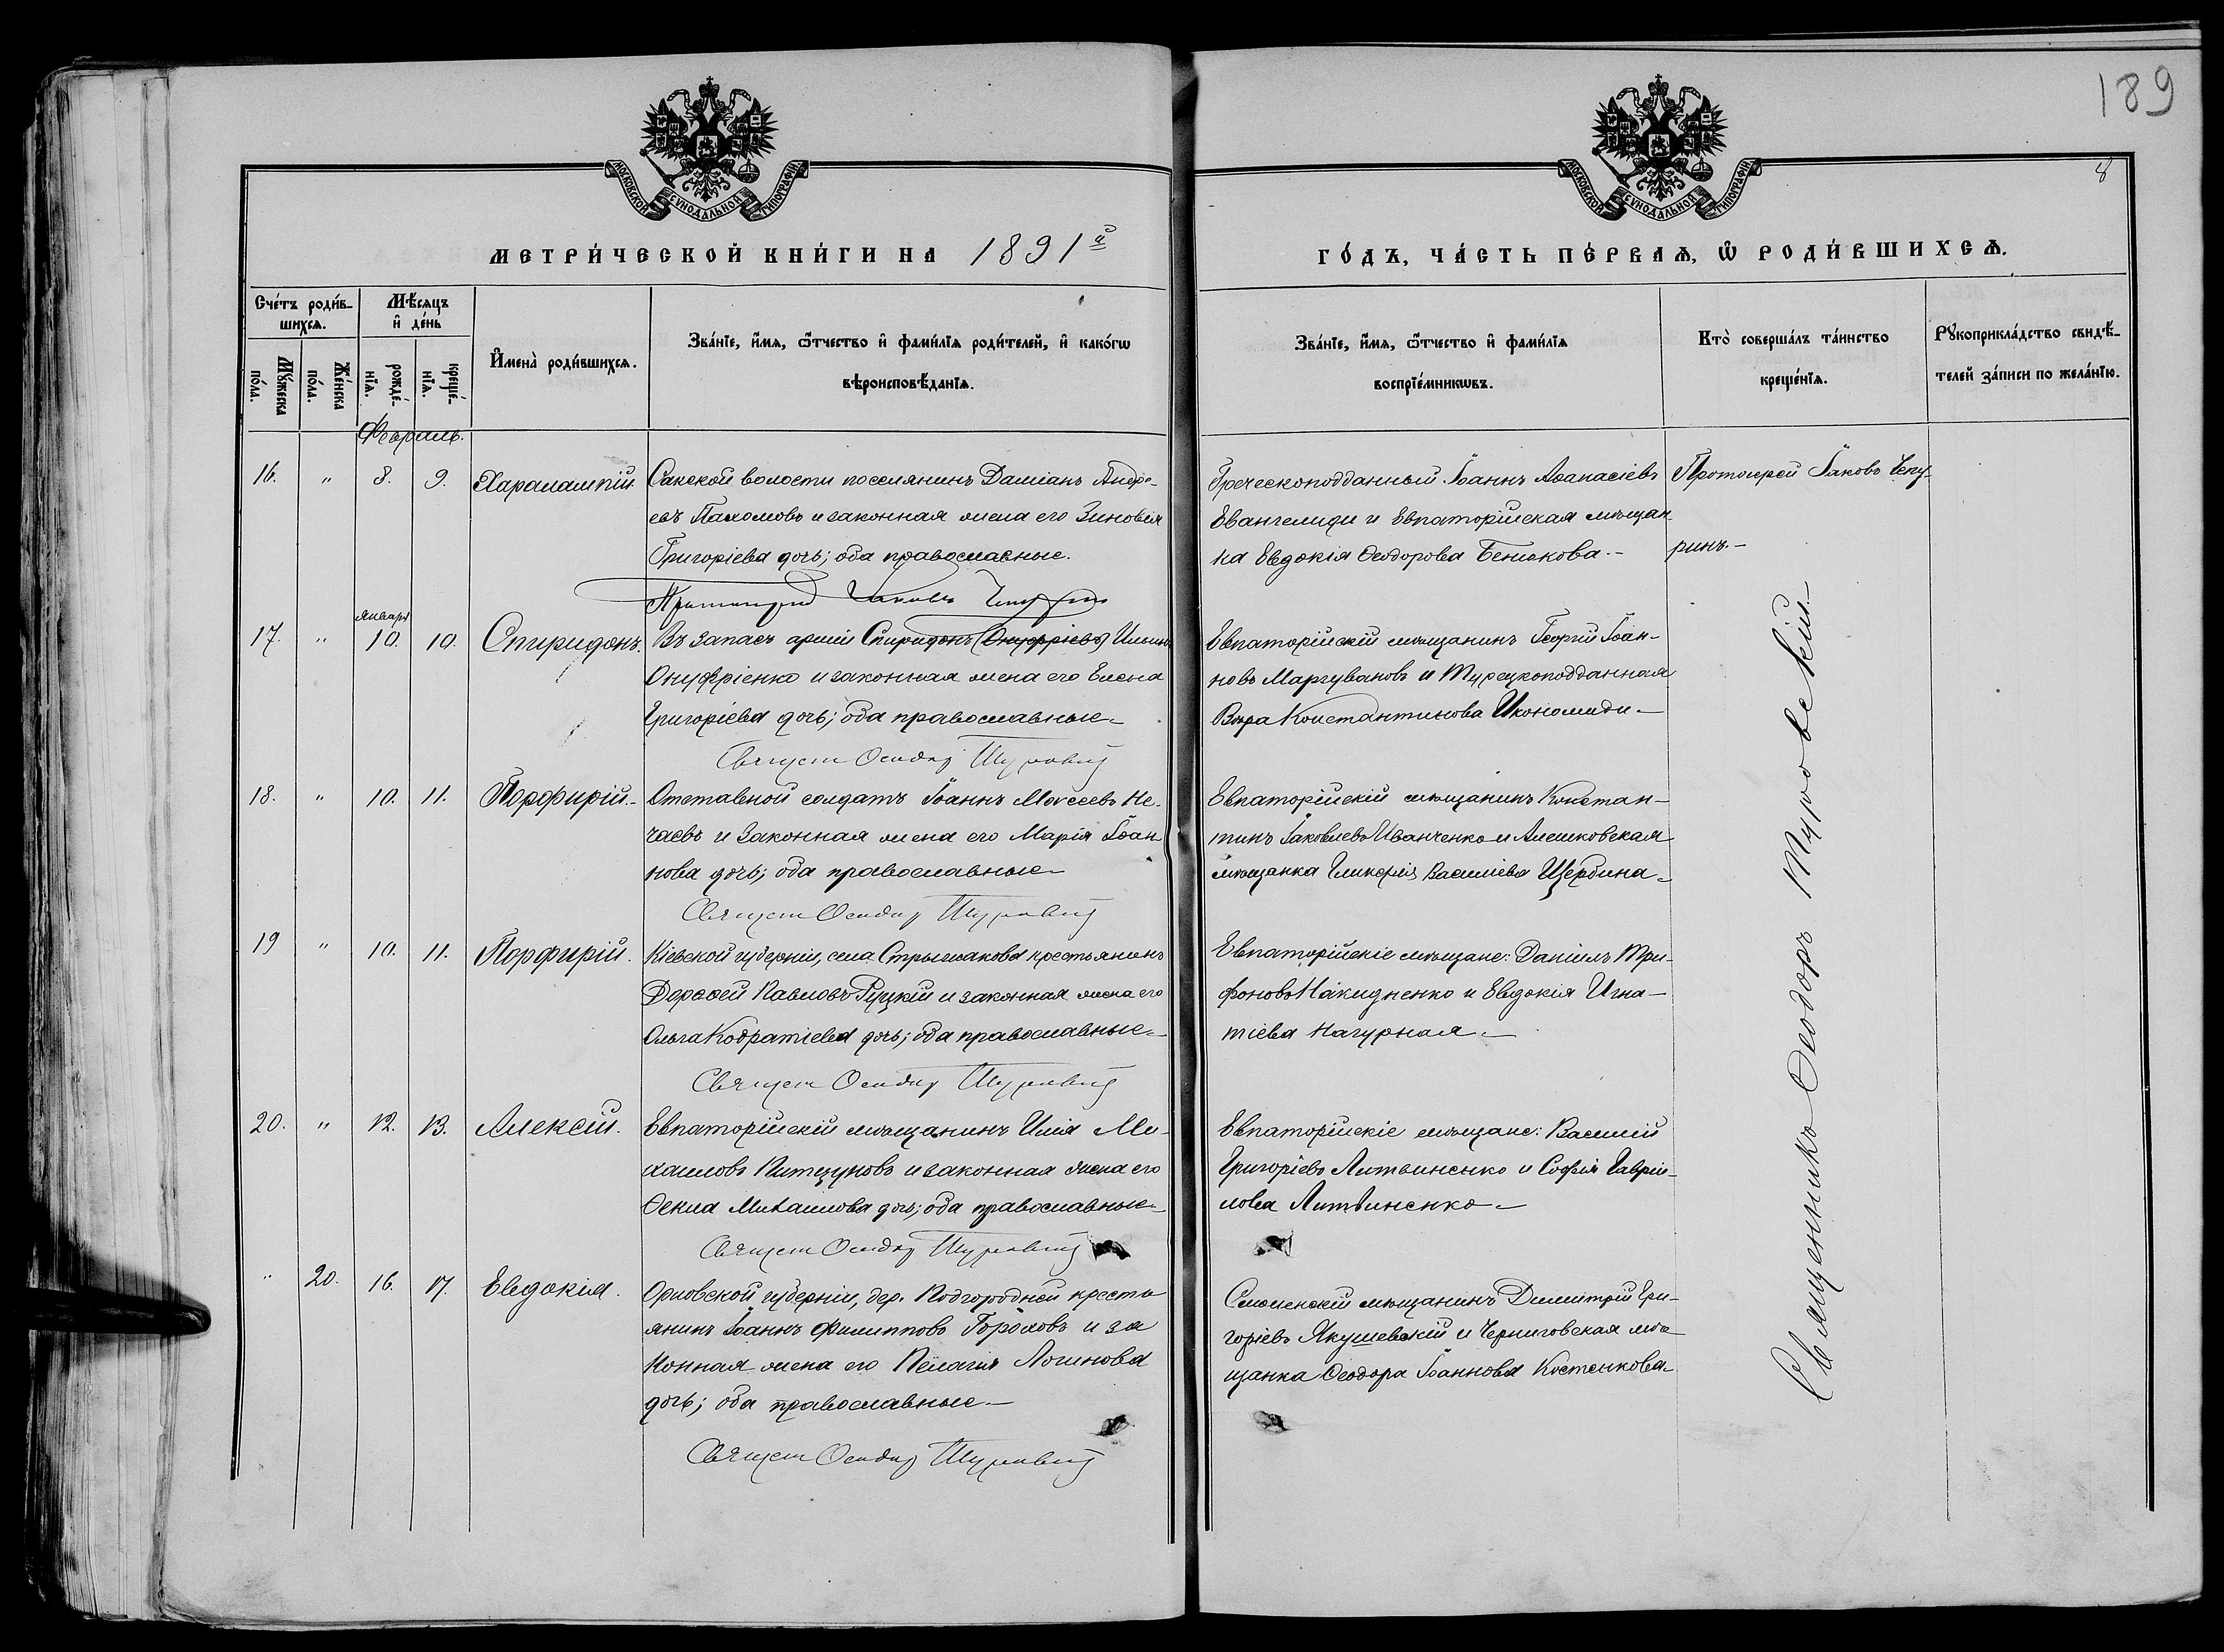 189
8
МОСКОВСКОЙ СѴНОДАЛЬНОЙ ТИПОГРАФІИ
МОСКОВСКОЙ СѴНОДАЛЬНОЙ ТИПОГРАФІИ
МЕТРИ́ЧЕСКОЙ КНИ́ГИ НА 1891й
ГО́ДЪ, ЧА́СТЬ ПЕ́РВАѦ, Ѽ РОДИ́ВШИХСѦ.
Сче́тъ роди́в-
шихсѧ.
Мѣ́сѧцъ
и҆ де́нь
Мꙋ́жеска
по́ла.
Же́нска
по́ла.
рожде́-
нїѧ.
креще́-
нїѧ.
И҆мена̀ роди́вшихсѧ.
Зва́нїе, и҆́мѧ, ѻ҆́тчество и҆ фами́лїѧ роди́телей, и҆ како́гѡ
вѣроисповѣ́данїѧ.
Зва́нїе, и҆́мѧ, ѻ҆́тчество и҆ фами́лїѧ
воспрїе́мникѡвъ.
Кто̀ соверша́лъ та́инство
креще́нїѧ.
Рꙋкоприкла́дство свидѣ́-
телей за́писи по жела́нїю.
Февраль.
16. " 8. 9. Харалампій. Сакской волости поселянинъ Даміанъ Андре-
евъ Пахомовъ и законная жена его Зиновія
Григоріева дочь; оба православные.
Протоіерей Іаковъ Чепуринъ
Греческоподданный Іоаннъ Аѳанасіевъ
Евангелиди и Евпаторійская мѣщан-
ка Евдокія Ѳеодорова Бенюкова.-
Протоіерей Іаковъ Чепу-
ринъ.-
января
17. " 10. 10. Спиридонъ. Въ запасѣ арміи Спиридонъ (Онуфріевъ) Ильинъ
Онуфріенко и законная жена его Елена
Григоріева дочь; оба православные-
Священ Ѳеодор Туровскій
Евпаторійскій мѣщанинъ Георгій Іоан-
новъ Маргувановъ и Турецкоподданная
Вѣра Константинова Икономиди-
18. " 10. 11. Порфирій.- Отставной солдатъ Іоаннъ Моѵсеевъ Не-
чаевъ и законная жена его Марія Іоан-
нова дочь; оба православные-
Священ Ѳеодор Туровскій
Евпаторійскій мѣщанинъ Констан-
тинъ Іаковлевъ Иванченко и Алешковская
мѣщанка Гликерія Василіева Щербина-
19 " 10. 11. Порфирій. Кіевской губерніи, села Стрыжакова крестьянинъ
Дороѳей Павловъ Руцкій и законная жена его
Ольга Кодратіева дочь; оба православные-
Священ Ѳеодор Туровскій
Евпаторійскіе мѣщане: Даніилъ Три-
фоновъ Накидненко и Евдокія Игна-
тіева Нагурная-
20. " 12. 13. Алексій. Евпаторійскій мѣщанинъ Илія Ми-
хаиловъ Питцуновъ и законная жена его
Ѳекла Михаилова дочь; оба православные-
Священ Ѳеодор Туровскій
Евпаторійскіе мѣщане: Василій
Григоріевъ Литвиненко и Софія Гавріи-
лова Литвиненко-
" 20. 16. 17. Евдокія. Орловской губерніи, дер. Подгородней кресть
янинъ Іоаннъ Филипповъ Гороховъ и за
конная жена его Пелагія Логинова
дочь; оба православные-
Священ Ѳеодор Туровскій
Смоленскій мѣщанинъ Димитрій Гри-
горіевъ Якушевскій и Черниговская мѣ-
щанка Ѳеодора Іоаннова Костенкова-
Священникъ Ѳеодоръ Туровскій.-